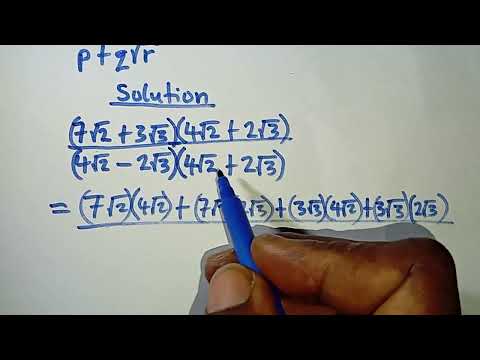 p+q√r
Solution
(7√2 + 3√3)(4√2 + 2√3)
(4√2 − 2√3)(4√2 + 2√3)
= (7√2)(4√2) + (7√ 2√3) + (3√3)(4√2) + (3√3)(2√3)